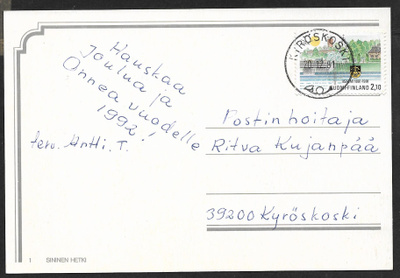 Hauskaa
Joulua ja
Onnea vuodelle
1992!
terv. Antti. T.
KYRÖSKOSKI
SUOMI FINLAND 2,10
Postinhoitaja
Ritva Kujanpää
39200 Kyröskoski
1 SININEN HETKI